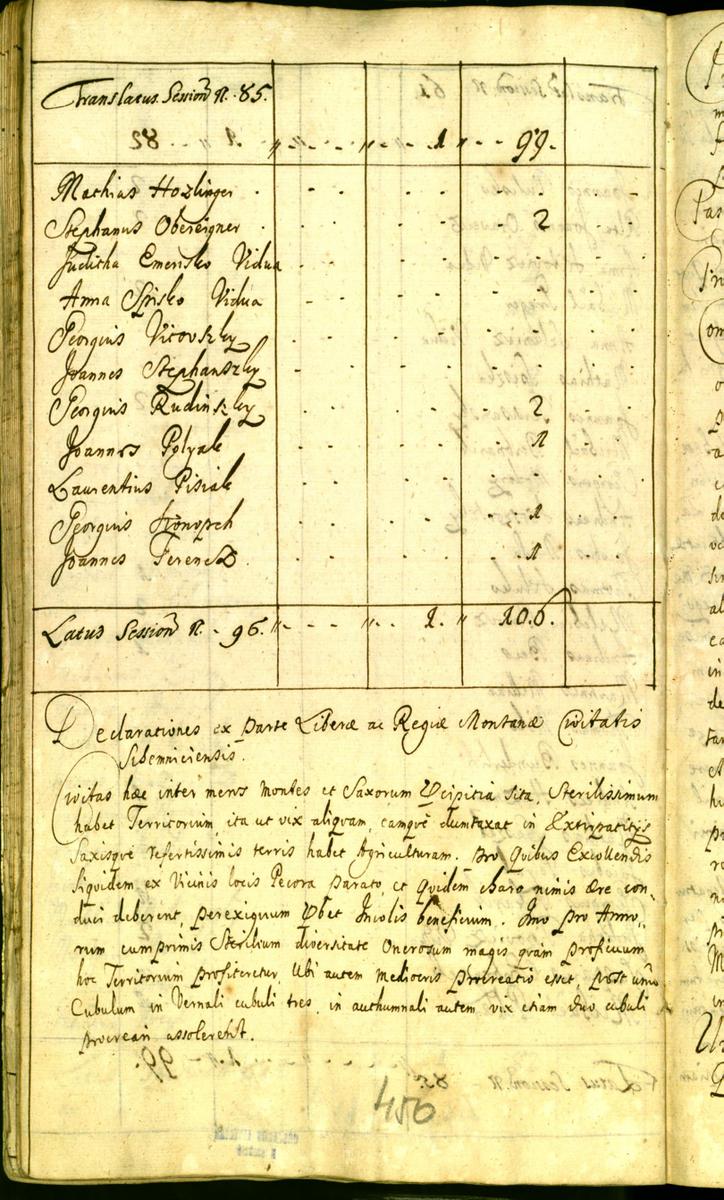 Translatus Session N. 85.
" - - - " - - 1 " - - 99.
Mathias Hozlinger . - - - -
Stephanus Obereigner . - - - 2
Juditha Emerisko Vidua
Anna Spisko Vidua
Georgius Vicovszky
Joannes Stephanszky
Georgius Rudinszky 2
Joannes Polyak 1
Laurentius Pisiak
Georgius 1
Joannes Ferencz 1
Latus Session N. - 96. " - - - " - - 1. " 106.
Declarationes ex parte Liberæ ac Regiæ Montanæ Civitatis
Schemniciensis.
Civitas hæc inter meros Montes et Saxorum Præcipitia sita, Sterilissimum
habet Territorium, ita ut vix aliquam, eamqvè dumtaxat in Extirpatitys
Saxisqvè refertissimis terris habet Agriculturam. pro Quibus Excollendis
Siquidem ex Vicinis locis Pecora parato, et quidem charo nimis ære con-
duci deberent, perexiguum præbet Incolis beneficium. Imo pro Anno-
rum cumprimis Sterilium diversitate Onerosum magis quàm proficuum
hoc Territorium profiteretur, Ubi autem mediocris procreatio esset, post unum
Cubulum in Vernali cubuli tres, in authumnali autem vix etiam duo cubuli
procreari assolerent.
456